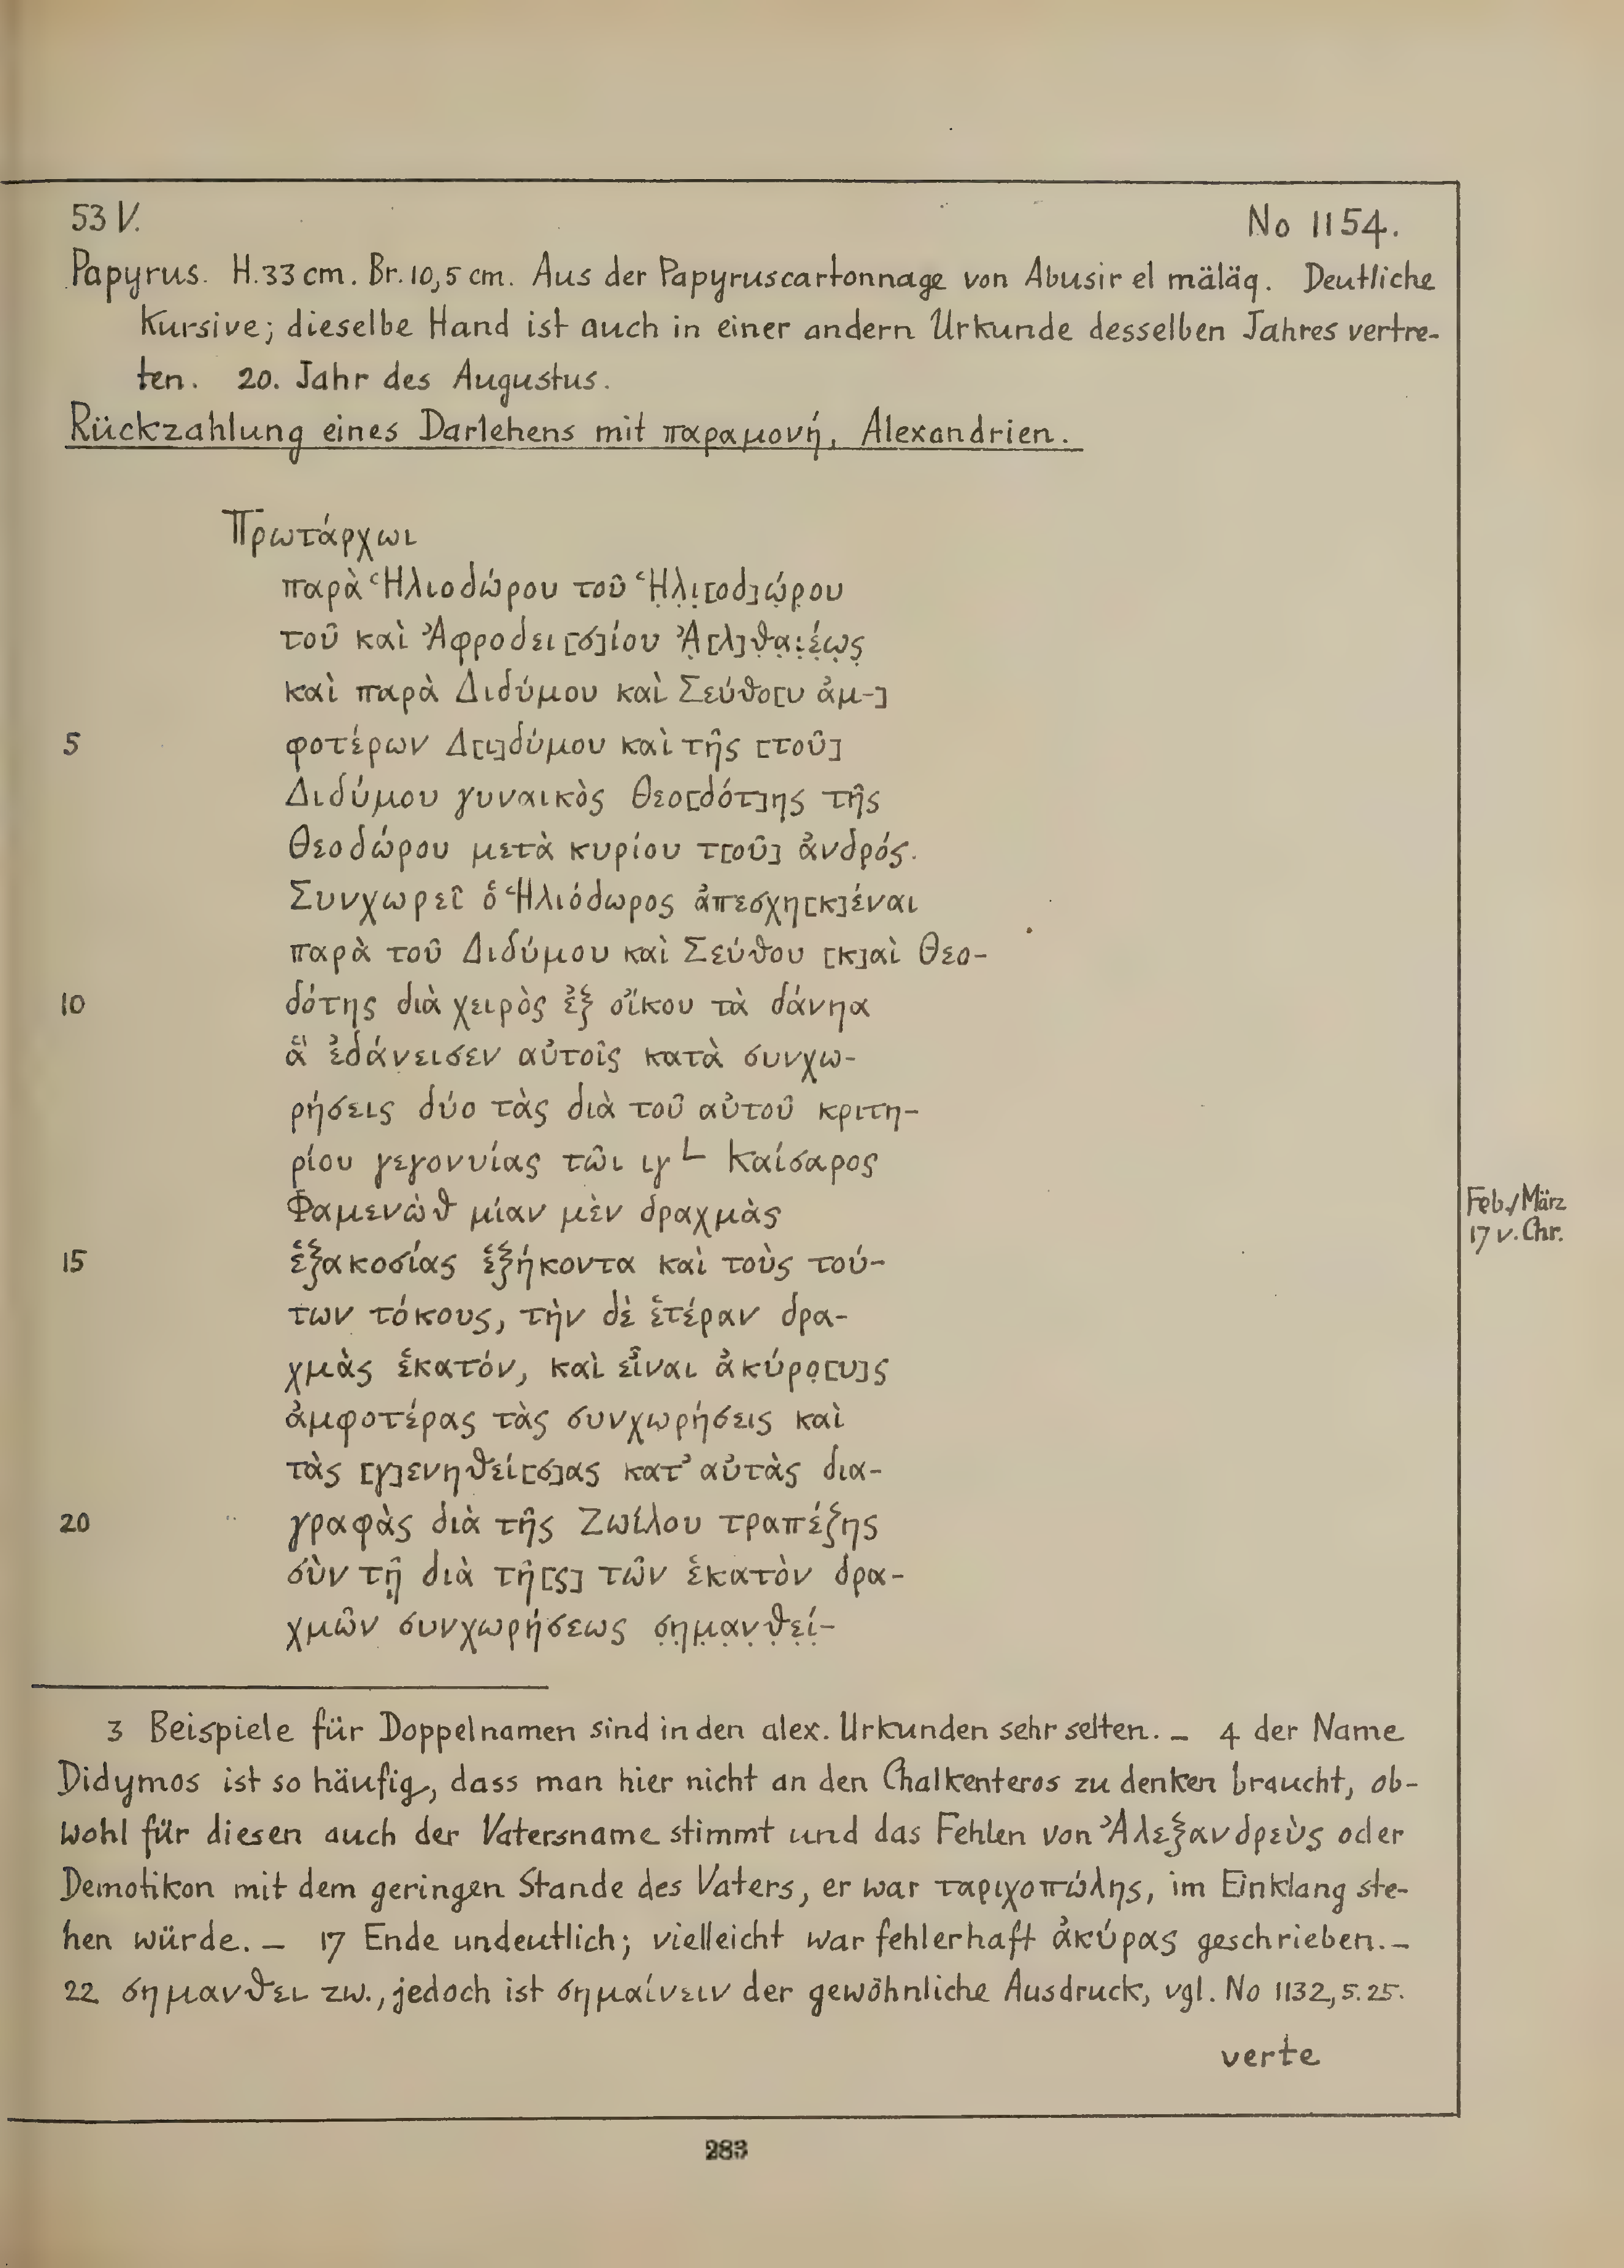 53 V. No 1154.
Papyrus. H. 33 cm. Br. 10,5 cm. Aus der Papyruscartonnage von Abusir el mäläq. Deutliche
Kursive; dieselbe Hand ist auch in einer andern Urkunde desselben Jahres vertre-
ten. 20. Jahr des Augustus.
Rückzahlung eines Darlehens mit παραμονή, Alexandrien.
Πρωτάρχωι
παρὰ Ἡλιοδώρου τοῦ Ἡ̣λ̣ι̣[οδ]ώ̣ρ̣ου
τοῦ καὶ Ἀφροδει[σ]ίου Ἀ̣[λ]θ̣α̣ι̣έ̣ω̣ς̣
καὶ παρὰ Διδύμου καὶ Σεύθο[υ ἀμ-]
5 φοτέρων Δ[ι]δύμου καὶ τῆς [τοῦ]
Διδύμου γυναικὸς Θεο[δότ]ης τῆς
Θεοδώρου μετὰ κυρίου τ[οῦ] ἀνδρός.
Συνχωρεῖ ὁ Ἡλιόδωρος ἀπεσχη[κ]έναι
παρὰ τοῦ Διδύμου καὶ Σεύθου [κ]αὶ Θεο-
10 δότης διὰ χειρὸς ἐξ οἴκου τὰ δάνηα
ἃ ἐδάνεισεν αὐτοῖς κατὰ συνχω-
ρήσεις δύο τὰς διὰ τοῦ αὐτοῦ κριτη-
ρίου γεγονυίας τῶι ιγ L Καίσαρος
Φαμενὼθ μίαν μὲν δραχμὰς
Feb./März
17 v. Chr.
15 ἑξακοσίας ἑξήκοντα καὶ τοὺς τού-
των τόκους, τὴν δὲ ἑτέραν δρα-
χμὰς ἑκατόν, καὶ εἶναι ἀκύρο̣[υ]ς
ἀμφοτέρας τὰς συνχωρήσεις καὶ
τὰς [γ]ενηθεί[σ]ας κατ' αὐτὰς δια-
20 γραφὰς διὰ τῆς Ζωίλου τραπέζης
σὺν τῇ διὰ τῆ[ς] τῶν ἑκατὸν δρα-
χμῶν συνχωρήσεως σ̣η̣μ̣α̣ν̣θ̣ε̣ί̣-
3 Beispiele für Doppelnamen sind in den alex. Urkunden sehr selten. – 4 der Name
Didymos ist so häufig, dass man hier nicht an den Chalkenteros zu denken braucht, ob-
wohl für diesen auch der Vatersname stimmt und das Fehlen von Ἀλεξανδρεὺς oder
Demotikon mit dem geringen Stande des Vaters, er war ταριχοπώλης, im Einklang ste-
hen würde. – 17 Ende undeutlich; vielleicht war fehlerhaft ἀκύρας geschrieben. –
22 σημανθει zw., jedoch ist σημαίνειν der gewöhnliche Ausdruck, vgl. No 1132, 5. 25.
verte
283